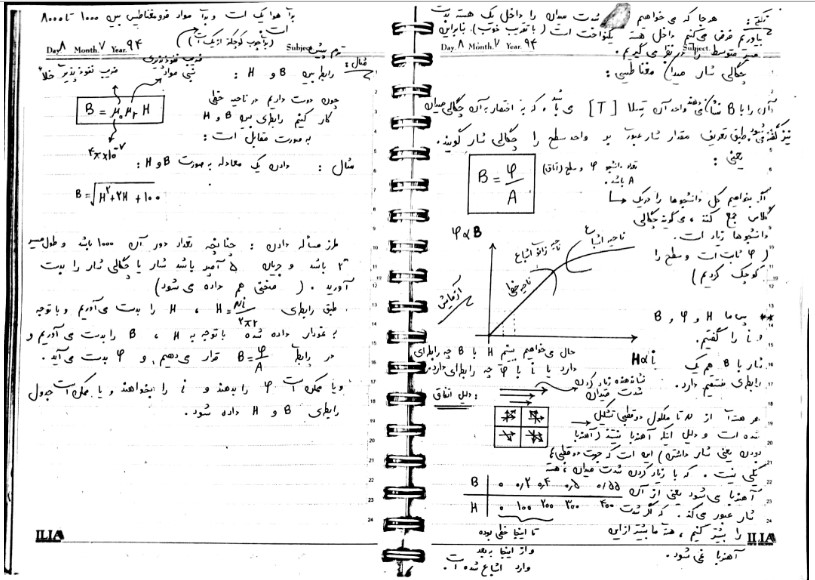 نکته : هر جا که می خواهیم شدت میدان را داخل یک هسته بدست
بیاوریم فرض می کنیم داخل هسته یکنواخت است (با تقریب خوب). بنابراین
Day. ۸ Month. ۷ Year. ۹۴ Subject.
متوسط را در نظر می گیریم.
چگالی شار میدان مغناطیسی :
آن را با B نشان می دهند واحد آن تسلا [T] می باشد، که به اختصار به آن چگالی میدان
نیز گفته می شود. طبق تعریف مقدار شار عبوری بر واحد سطح را چگالی شار گویند.
یعنی :
B = φ / A
تعداد دانشجو φ و سطح (اتاق)
A باشد.
اگر بخواهیم کل دانشجوها را در یک
کلاس جمع کنند، می گویند چگالی
دانشجوها زیاد است.
(φ ثابت است و سطح را
کوچک کردیم)
φ ∝ B
ناحیه خطی
ناحیه زانو اشباع
ناحیه اشباع
آزمایش
H ∝ i
** پس ما H و φ و B
و i را گفتیم.
شار با B هم یک
رابطه مستقیم دارد.
حال می خواهیم ببینیم H با B چه رابطه ای
دارد یا i با φ چه رابطه ای دارد.
نشان دهنده زیاد کردن
شدت میدان
دلیل اتفاق :
هر هسته از مولکول دوقطبی تشکیل
شده است و دلیل اینکه آهنربا نیستند (آهنربا
بودن یعنی شار داشتن) این است که جهت دوقطبی ها
یکی نیست. که با زیاد کردن شدت میدان، هسته
آهنربا می شود یعنی از آن
شار عبور می کند. که اگر شدت
را بیشتر کنیم، هسته ما بیشتر از این
آهنربا نمی شود.
B | ۰ ۰٫۲ ۰٫۴ ۰٫۵ ۰٫۵۵
H | ۰ ۱۰۰ ۲۰۰ ۳۰۰ ۴۰۰
تا اینجا خطی بوده
و از اینجا به بعد
وارد اشباع شده است.
ILIA
برای هوا یک است و برای مواد فرومغناطیس بین ۱۰۰۰ تا ۸۰۰۰
است
Day. ۸ Month. ۷ Year. ۹۴ Subject.
مثال : رابطه بین B و H :
ضریب نفوذپذیری
نسبی مواد
ضریب نفوذپذیری خلأ
B = μ₀ μr H
۴π×۱۰⁻⁷
چون دوست داریم در ناحیه خطی
کار کنیم رابطه ی بین B و H
به صورت مقابل است :
مثال : دادن یک معادله به صورت B و H :
B = √(H² + ۲H + ۱۰۰)
طرز مسأله دادن : چنانچه تعداد دور آن ۱۰۰۰ باشد و طول مسیر
۲ باشد و جریان ۵ آمپر باشد شار یا چگالی شار را بدست
آورید. (منحنی هم داده می شود)
طبق رابطه ی H = Ni / ۲πr ، H را بدست می آوریم و با توجه
به نمودار داده شده با توجه به H ، B را بدست می آوریم و
در رابطه B = φ / A قرار می دهیم و φ بدست می آید.
و یا ممکن است φ را بدهند و i را بخواهند و یا ممکن است جدول
رابطه ی B و H داده شود.
ILIA